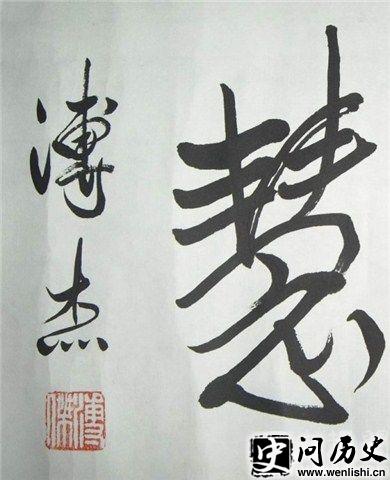 慧
溥杰
溥傑
史问历史
www.wenlishi.cn